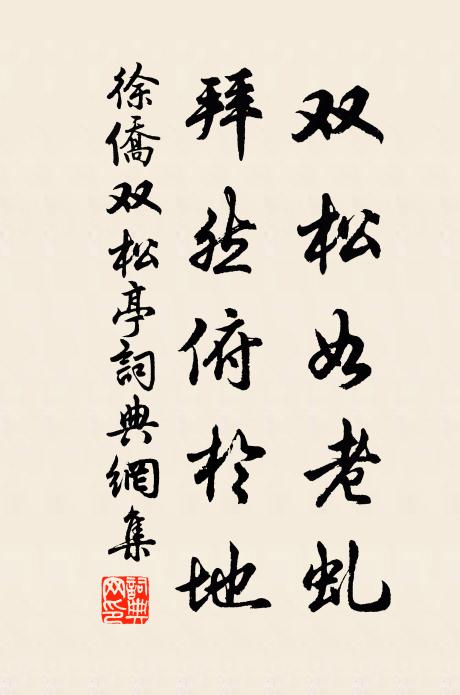 双松如老虬
拜然俯於地
徐僑双松亭詞典網集
詞典网印